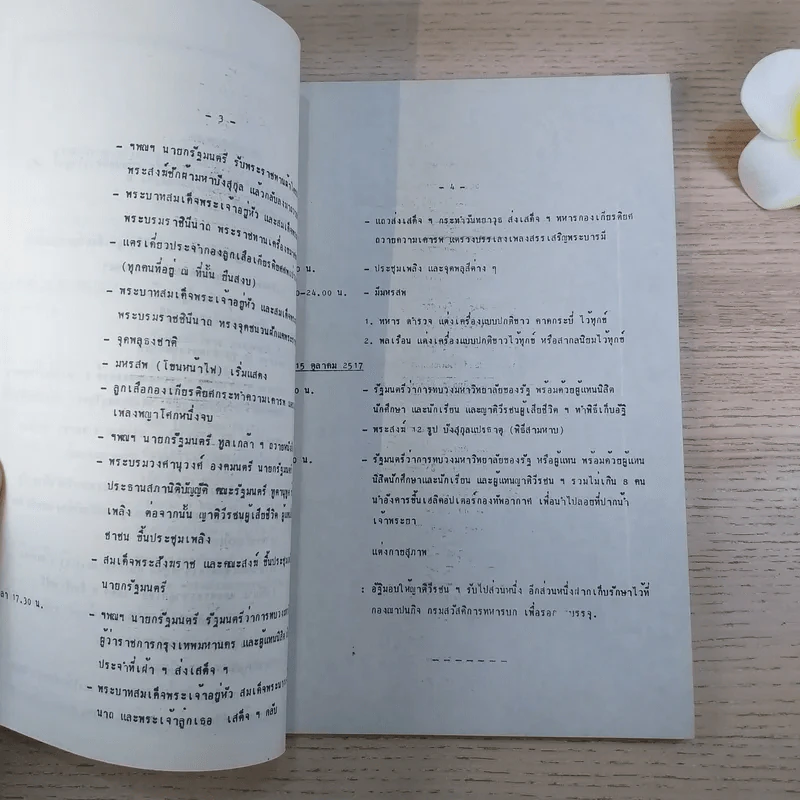 - 3 -
- ฯพณฯ นายกรัฐมนตรี รับพระราชทาน
พระสงฆ์ชักผ้ามหาบังสุกุล แล้วกลับลงมา
- พระบาทสมเด็จพระเจ้าอยู่หัว และสมเด็จ
พระบรมราชินีนาถ พระราชทานเครื่อง
- แตรเดี่ยวประจำกองลูกเสือเกียรติยศ
(ทุกคนที่อยู่ ณ ที่นั้น ยืนสงบ)
- พระบาทสมเด็จพระเจ้าอยู่หัว และสมเด็จ
พระบรมราชชินีนาถ ทรงจุดชนวนฝักแค
- จุดพลุธงชาติ
- มหรสพ (โขนหน้าไฟ) เริ่มแสดง
- ลูกเสือกองเกียรติยศกระทำความเคารพ
เพลงพญาโศกหนึ่งจบ
- ฯพณฯ นายกรัฐมนตรี ทูลเกล้า ฯ ถวาย
- พระบรมวงศานุวงศ์ องคมนตรี นายกรัฐมนตรี
ประธานสภานิติบัญญัติ คณะรัฐมนตรี
เพลิง ต่อจากนั้น ญาติวีรชนผู้เสียชีวิต
ชาชน ขึ้นประชุมเพลิง
- สมเด็จพระสังฆราช และคณะสงฆ์ ขึ้นประชุม
นายกรัฐมนตรี
17.30 น.
- ฯพณฯ นายกรัฐมนตรี รัฐมนตรีว่าการทบวง
ผู้ว่าราชการกรุงเทพมหานคร และผู้แทนนิสิต
ประจำที่เฝ้า ฯ ส่งเสด็จ ฯ
- พระบาทสมเด็จพระเจ้าอยู่หัว สมเด็จพระนาง
นาถ และพระเจ้าลูกเธอ เสด็จ ฯ กลับ
- 4 -
- แถวส่งเสด็จ ฯ กระทำวันทยาวุธ ส่งเสด็จ ฯ ทหารกองเกียรติยศ
ถวายความเคารพ แตรวงบรรเลงเพลงสรรเสริญพระบารมี
น. - ประชุมเพลิง และจุดพลุสีต่าง ๆ
-24.00 น. - มีมหรสพ
1. ทหาร ตำรวจ แต่งเครื่องแบบปกติขาว คาดกระบี่ ไว้ทุกข์
2. พลเรือน แต่งเครื่องแบบปกติขาวไว้ทุกข์ หรือสากลนิยมไว้ทุกข์
15 ตุลาคม 2517
น. - รัฐมนตรีว่าการทบวงมหาวิทยาลัยของรัฐ พร้อมด้วยผู้แทนนิสิต
นักศึกษา และนักเรียน และญาติวีรชนผู้เสียชีวิต ฯ ทำพิธีเก็บอัฐิ
- พระสงฆ์ 12 รูป บังสุกุลแปรธาตุ (พิธีสามหาบ)
น. - รัฐมนตรีว่าการทบวงมหาวิทยาลัยของรัฐ หรือผู้แทน พร้อมด้วยผู้แทน
นิสิตนักศึกษาและนักเรียน และผู้แทนญาติวีรชน ฯ รวมไม่เกิน 8 คน
นำอังคารขึ้นเฮลิคอปเตอร์กองทัพอากาศ เพื่อนำไปลอยที่ปากน้ำ
เจ้าพระยา
แต่งกายสุภาพ
: อัฐิมอบให้ญาติวีรชน ฯ รับไปส่วนหนึ่ง อีกส่วนหนึ่งฝากเก็บรักษาไว้ที่
กองฌาปนกิจ กรมสวัสดิการทหารบก เพื่อรอ บรรจุ.